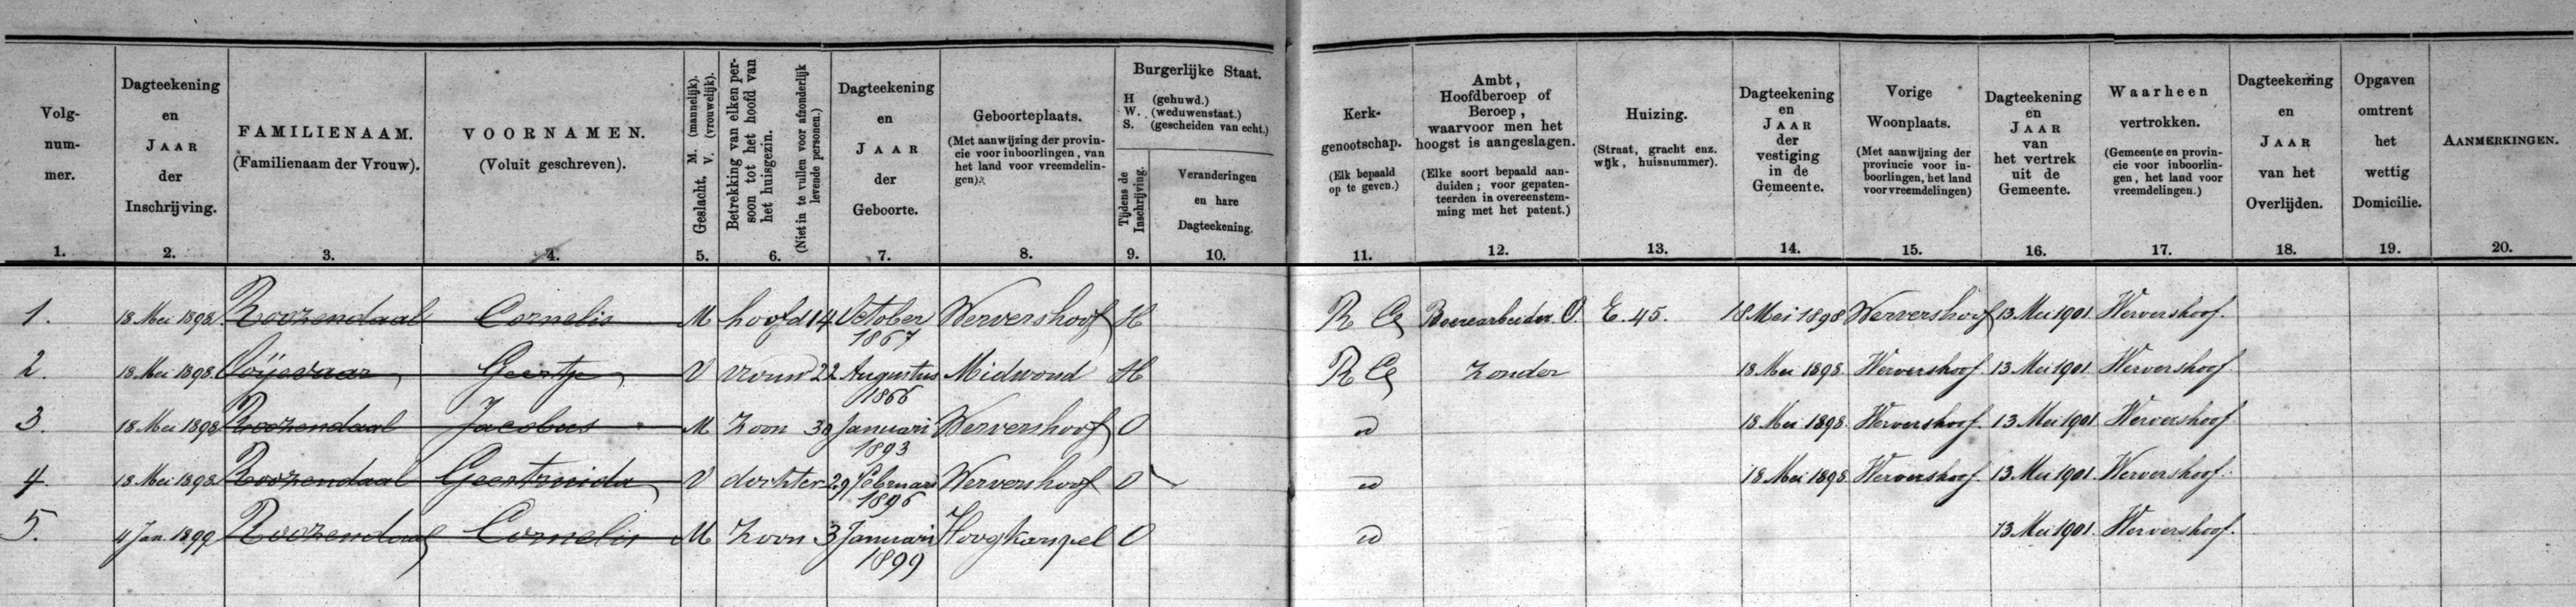 Volg-
num-
mer.
1.
Dagteekening
en
JAAR
der
Inschrijving.
2.
FAMILIENAAM.
(Familienaam der Vrouw).
3.
VOORNAMEN.
(Voluit geschreven).
4.
Geslacht. M. (mannelijk).
V. (vrouwelijk).
5.
Betrekking van elken per-
soon tot het hoofd van
het huisgezin.
(Niet in te vullen voor afzonderlijk
levende personen.)
6.
Dagteekening
en
JAAR
der
Geboorte.
7.
Geboorteplaats.
(Met aanwijzing der provin-
cie voor inboorlingen, van
het land voor vreemdelin-
gen).
8.
Burgerlijke Staat.
H (gehuwd.)
W. (weduwenstaat.)
S. (gescheiden van echt.)
Tijdens de
Inschrijving.
9.
Veranderingen
en hare
Dagteekening.
10.
Kerk-
genootschap.
(Elk bepaald
op te geven.)
11.
Ambt,
Hoofdberoep of
Beroep,
waarvoor men het
hoogst is aangeslagen.
(Elke soort bepaald aan-
duiden; voor gepaten-
teerden in overeenstem-
ming met het patent.)
12.
Huizing.
(Straat, gracht enz.
wijk, huisnummer).
13.
Dagteekening
en
JAAR
der
vestiging
in de
Gemeente.
14.
Vorige
Woonplaats.
(Met aanwijzing der
provincie voor in-
boorlingen, het land
voor vreemdelingen)
15.
Dagteekening
en
JAAR
van
het vertrek
uit de
Gemeente.
16.
Waarheen
vertrokken.
(Gemeente en provin-
cie voor inboorlin-
gen, het land voor
vreemdelingen.)
17.
Dagteekening
en
JAAR
van het
Overlijden.
18.
Opgaven
omtrent
het
wettig
Domicilie.
19.
AANMERKINGEN.
20.
1. 18 Mei 1898. Roozendaal Cornelis M hoofd 14 October 1867 Wervershoof H R C Boerearbeider O. E. 45. 18 Mei 1898 Wervershoof 13 Mei 1901 Wervershoof.
2. 18 Mei 1898. Geertje V vrouw 22 Augustus 1866 Midwoud H R C zonder 18 Mei 1898. Wervershoof. 13 Mei 1901. Wervershoof
3. 18 Mei 1898 Roozendaal Jacobus M zoon 30 Januari 1893 Wervershoof O id 18 Mei 1898. Wervershoof. 13 Mei 1901 Wervershoof
4. 18 Mei 1898. Roozendaal Geertruida V dochter 29 Februari 1896 Wervershoof O id 18 Mei 1898 Wervershoof. 13 Mei 1901. Wervershoof.
5. 4 Jan. 1899 Roozendaal Cornelis M zoon 3 Januari 1899 Hoogkarspel O id 13 Mei 1901. Wervershoof.